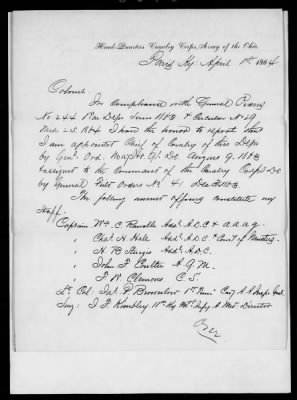 Head-Quarters Cavalry Corps, Army of the Ohio.
Paris Ky. April 1st 1864
Colonel.
In compliance with General Orders
No 244 War Dept June 1863 & Circular No 29
I have the honor to report that
I am appointed Chief of Cavalry of this Dept
by Genl. Ord. No 91 Hd. Qr. D.O. August 9. 1863
assigned to the Command of the Cavalry Corps D.O
by General Field Orders No 41 Dec 1863.
The following named officers constitute my
staff.
Captain Wm. C. Rawolle Addl A.D.C & a.a.a.g.
" Chas. H. Hale Addl A.D.C. Comy of Musters.
" H. B. Sturgis Addl A.D.C.
" John F. Coulter A.Q.M.
" F. W. Clemons C.S.
Lt. Col. Jas. P. Brownlow 1st Tenn Cavy A A Insp Genl
Surg. I. F. Kimbley 11th Ky Med Director
Over